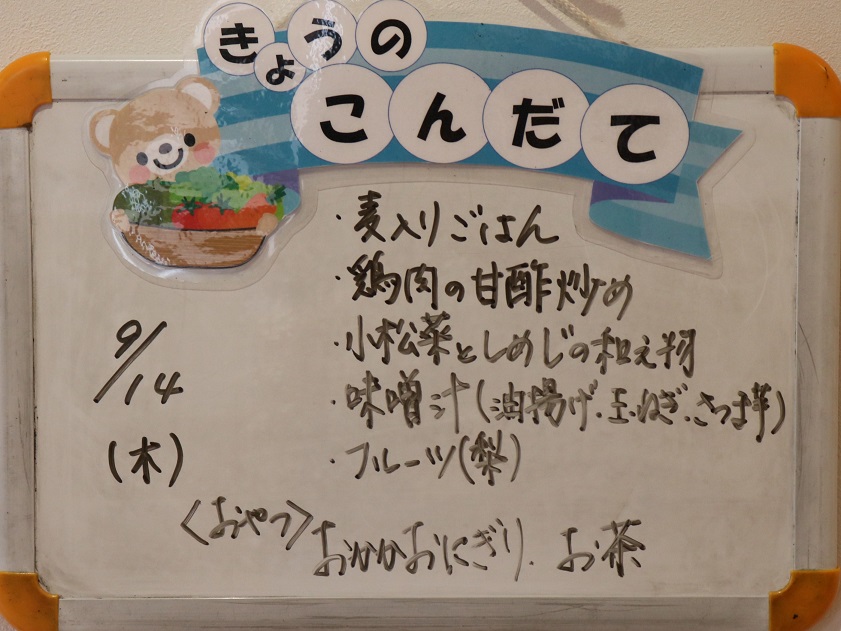 きょうの
こんだて
・麦入りごはん
・鶏肉の甘酢炒め
・小松菜としめじの和え物
9/14
・味噌汁(油揚げ、玉ねぎ、さつま芋)
(木)
・フルーツ(梨)
<おやつ>
おかかおにぎり、お茶